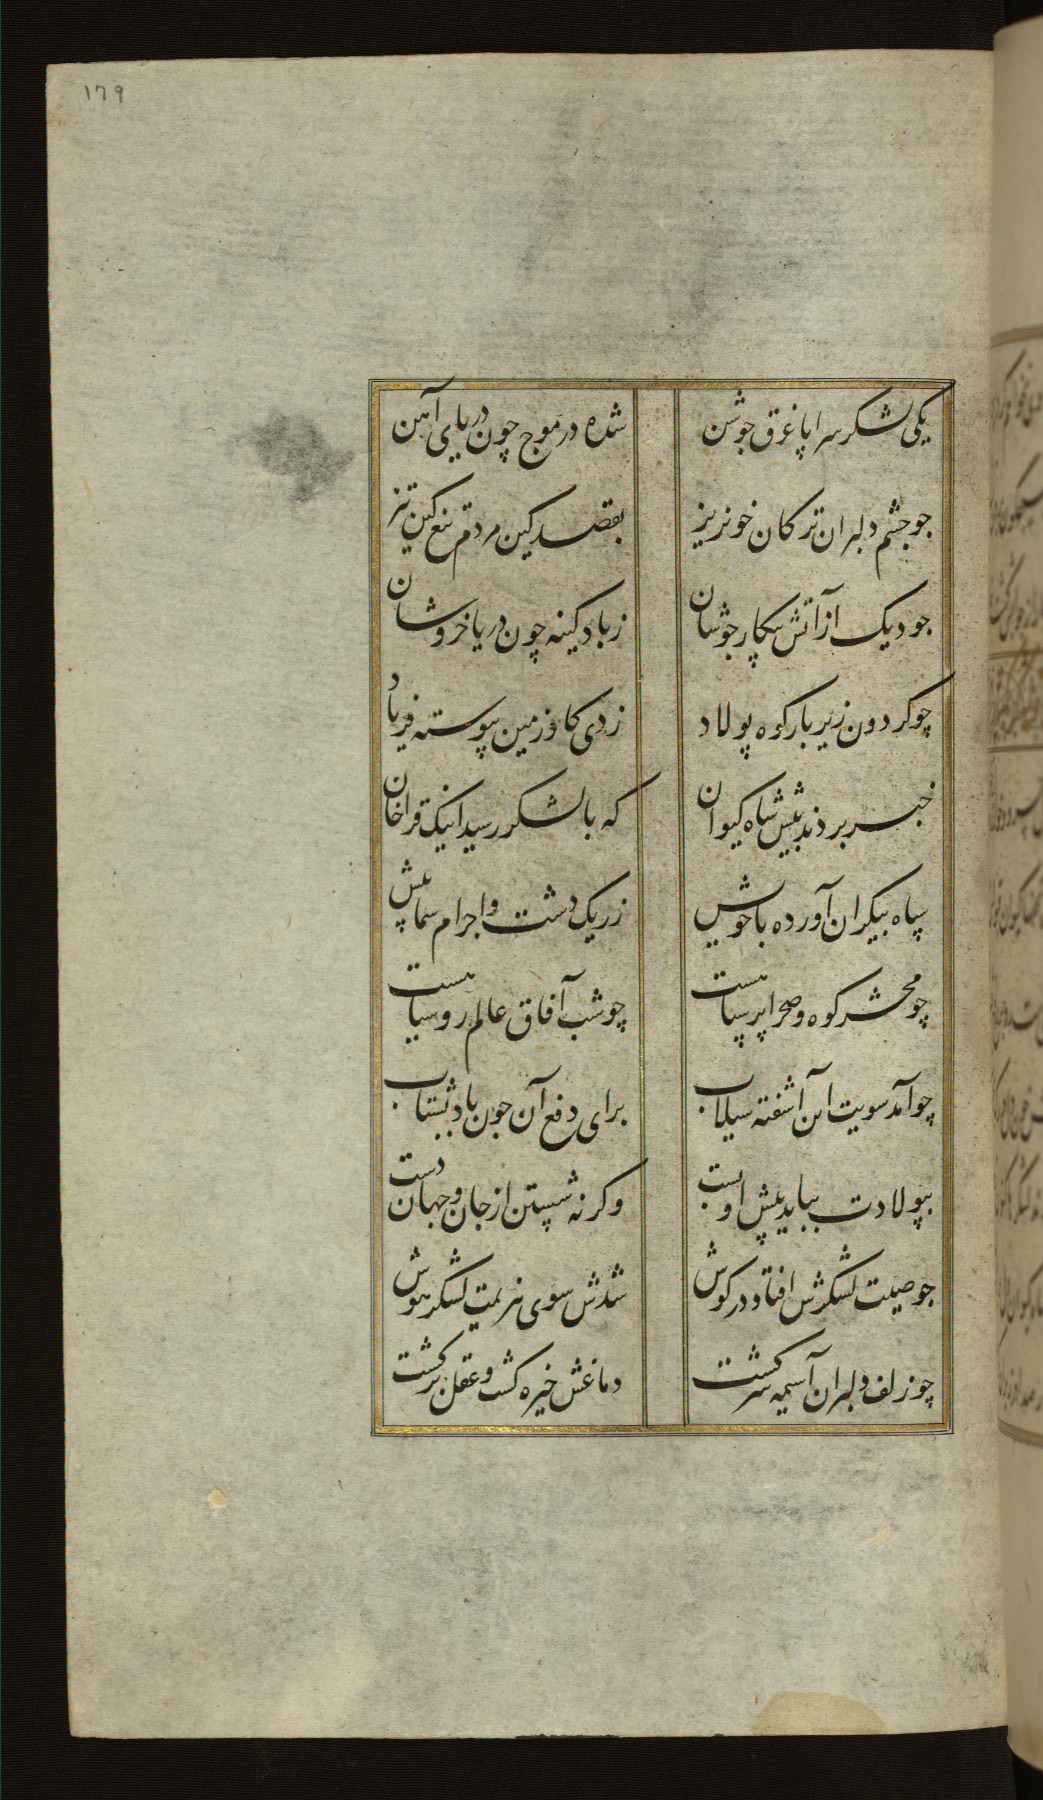 ١٧٩
یکی لشکر سراپا غرق جوشن
شده در موج چون دریای آهن
جو جشم دلبران ترکان خونریز
بقصد کین مردم تیغ کین تیز
جو دیک از آتش پیکار جوشان
زباد کینه چون دریا خروشان
چو کردون زیر بار کوه پولاد
زدی کاو زمین پیوسته فریاد
خبر بردند پیش شاه کیوان
که با لشکر رسید اینک قراخان
سپاه بیکران آورده باخویش
زریک دشت و اجرام سما پیش
چو محشر کوه و صحرا پر سپاهست
چو شب آفاق عالم رو سیاهست
چو آمد سویت این آشفته سیلاب
برای دفع آن جون باد بشتاب
بپولادت بباید پیش او بست
و کرنه شستن از جان و جهان دست
جو صیت لشکرش افتاد در کوش
شدش سوی هزیمت لشکر هوش
چو زلف دلبران آسیمه سر کشت
دماغش خیره کشت و عقل برکشت